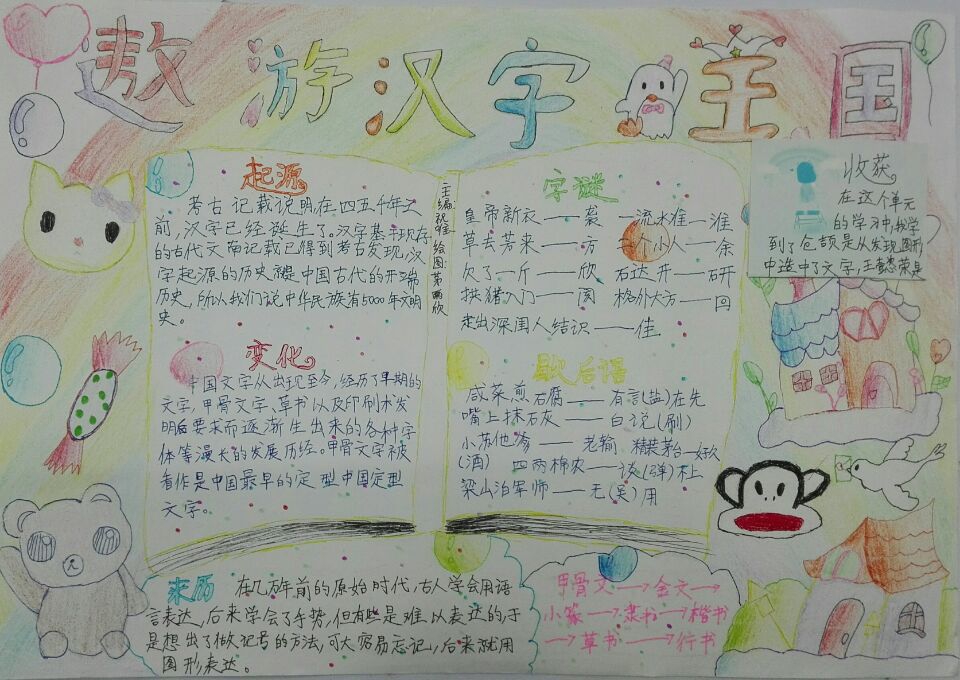 遨游汉字王国
起源
考古记载说明在四五千年之
前,汉字已经诞生了。汉字基于现存
的古代文南记载已得到考古发现,汉
字起源的历史就是中国古代的开端
历史,所以我们说中华民族有5000年文明
史。
变化
中国文字从出现至今,经历了早期的
文字,甲骨文字、草书以及印刷术发
明后要求而逐渐生出来的各种字
体等漫长的发展历经。甲骨文字被
看作是中国最早的定型中国定型
文字。
主编:祝
绘图:第
欣
字谜
皇帝新衣——袭 一流水准——准
草去芳来——方 三个小人——余
欠了一斤——欣 石达开——研
拱猪入门——阂 格外大方——回
走出深闺人结识——佳
歇后语
咸菜煎豆腐——有言(盐)在先
嘴上抹石灰——白说(刷)
小苏他爹——老输 精装茅台——好久
(酒) 四两棉衣——谈(弹)不上
梁山泊军师——无(吴)用
收获
在这个单元
的学习中,我学
到了仓颉是从发现图形
中造中了文字,王懿荣是
来历 在几万年前的原始时代,古人学会用语
言表达,后来学会了手势,但有些是难以表达的于
是想出了做记号的方法,可太容易忘记,后来就用
图形表达。
甲骨文→金文→
小篆→隶书→楷书
→草书→行书